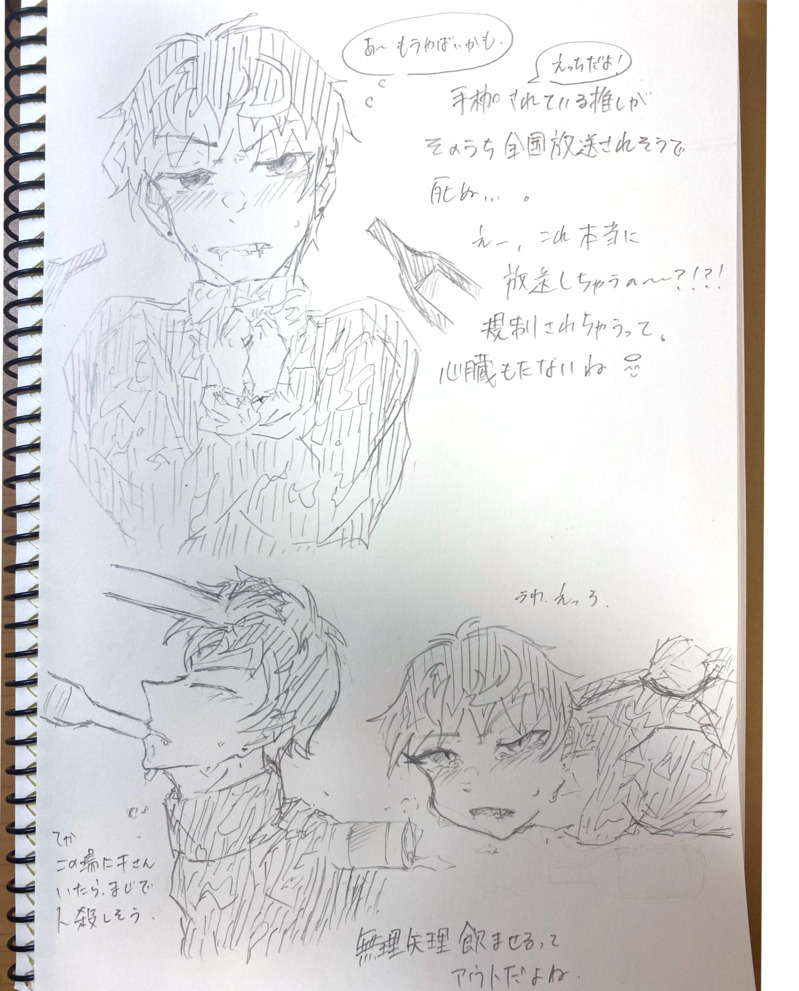 あ〜もうやばいかも..
えっちだよ!
手枷されている推しが
そのうち全国放送されそうで
死ぬ...。
えー、これ本当に
放送しちゃうの〜?!?!
規制されちゃうって。
心臓もたないね
うわ、えっろ.
てか
この場に千さん
いたら、まじで
人殺しそう.
無理矢理飲ませるって
アウトだよね.